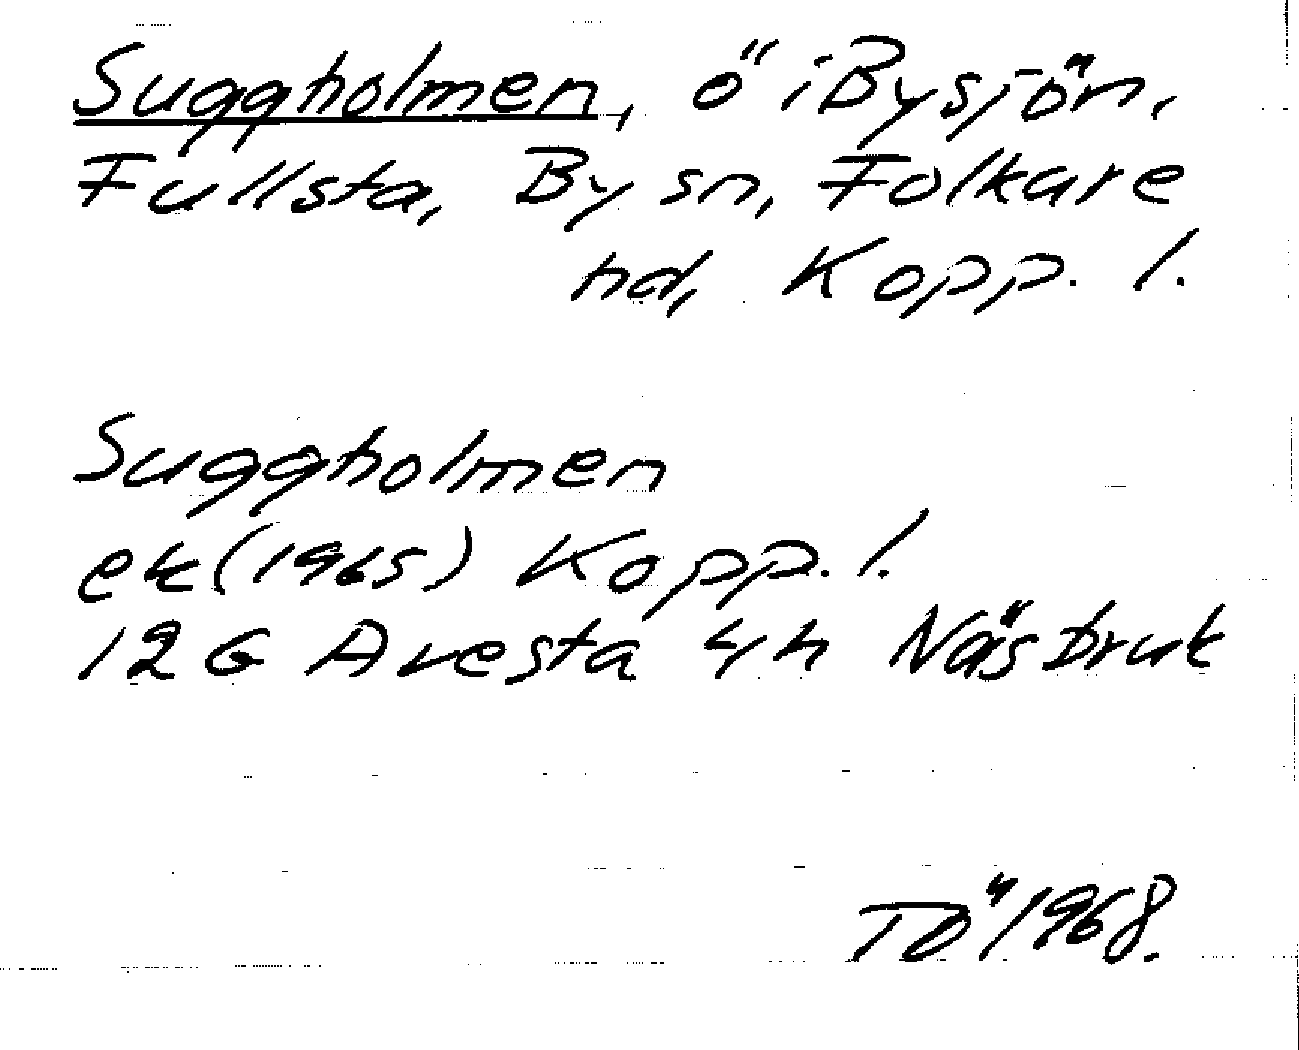 Suggholmen, ö i Bysjön,
Fullsta, By sn, Folkare
hd, Kopp. l.
Suggholmen
ek (1965) Kopp. l.
12 G Avesta 4 h Näsbruk
TÖ 1968.